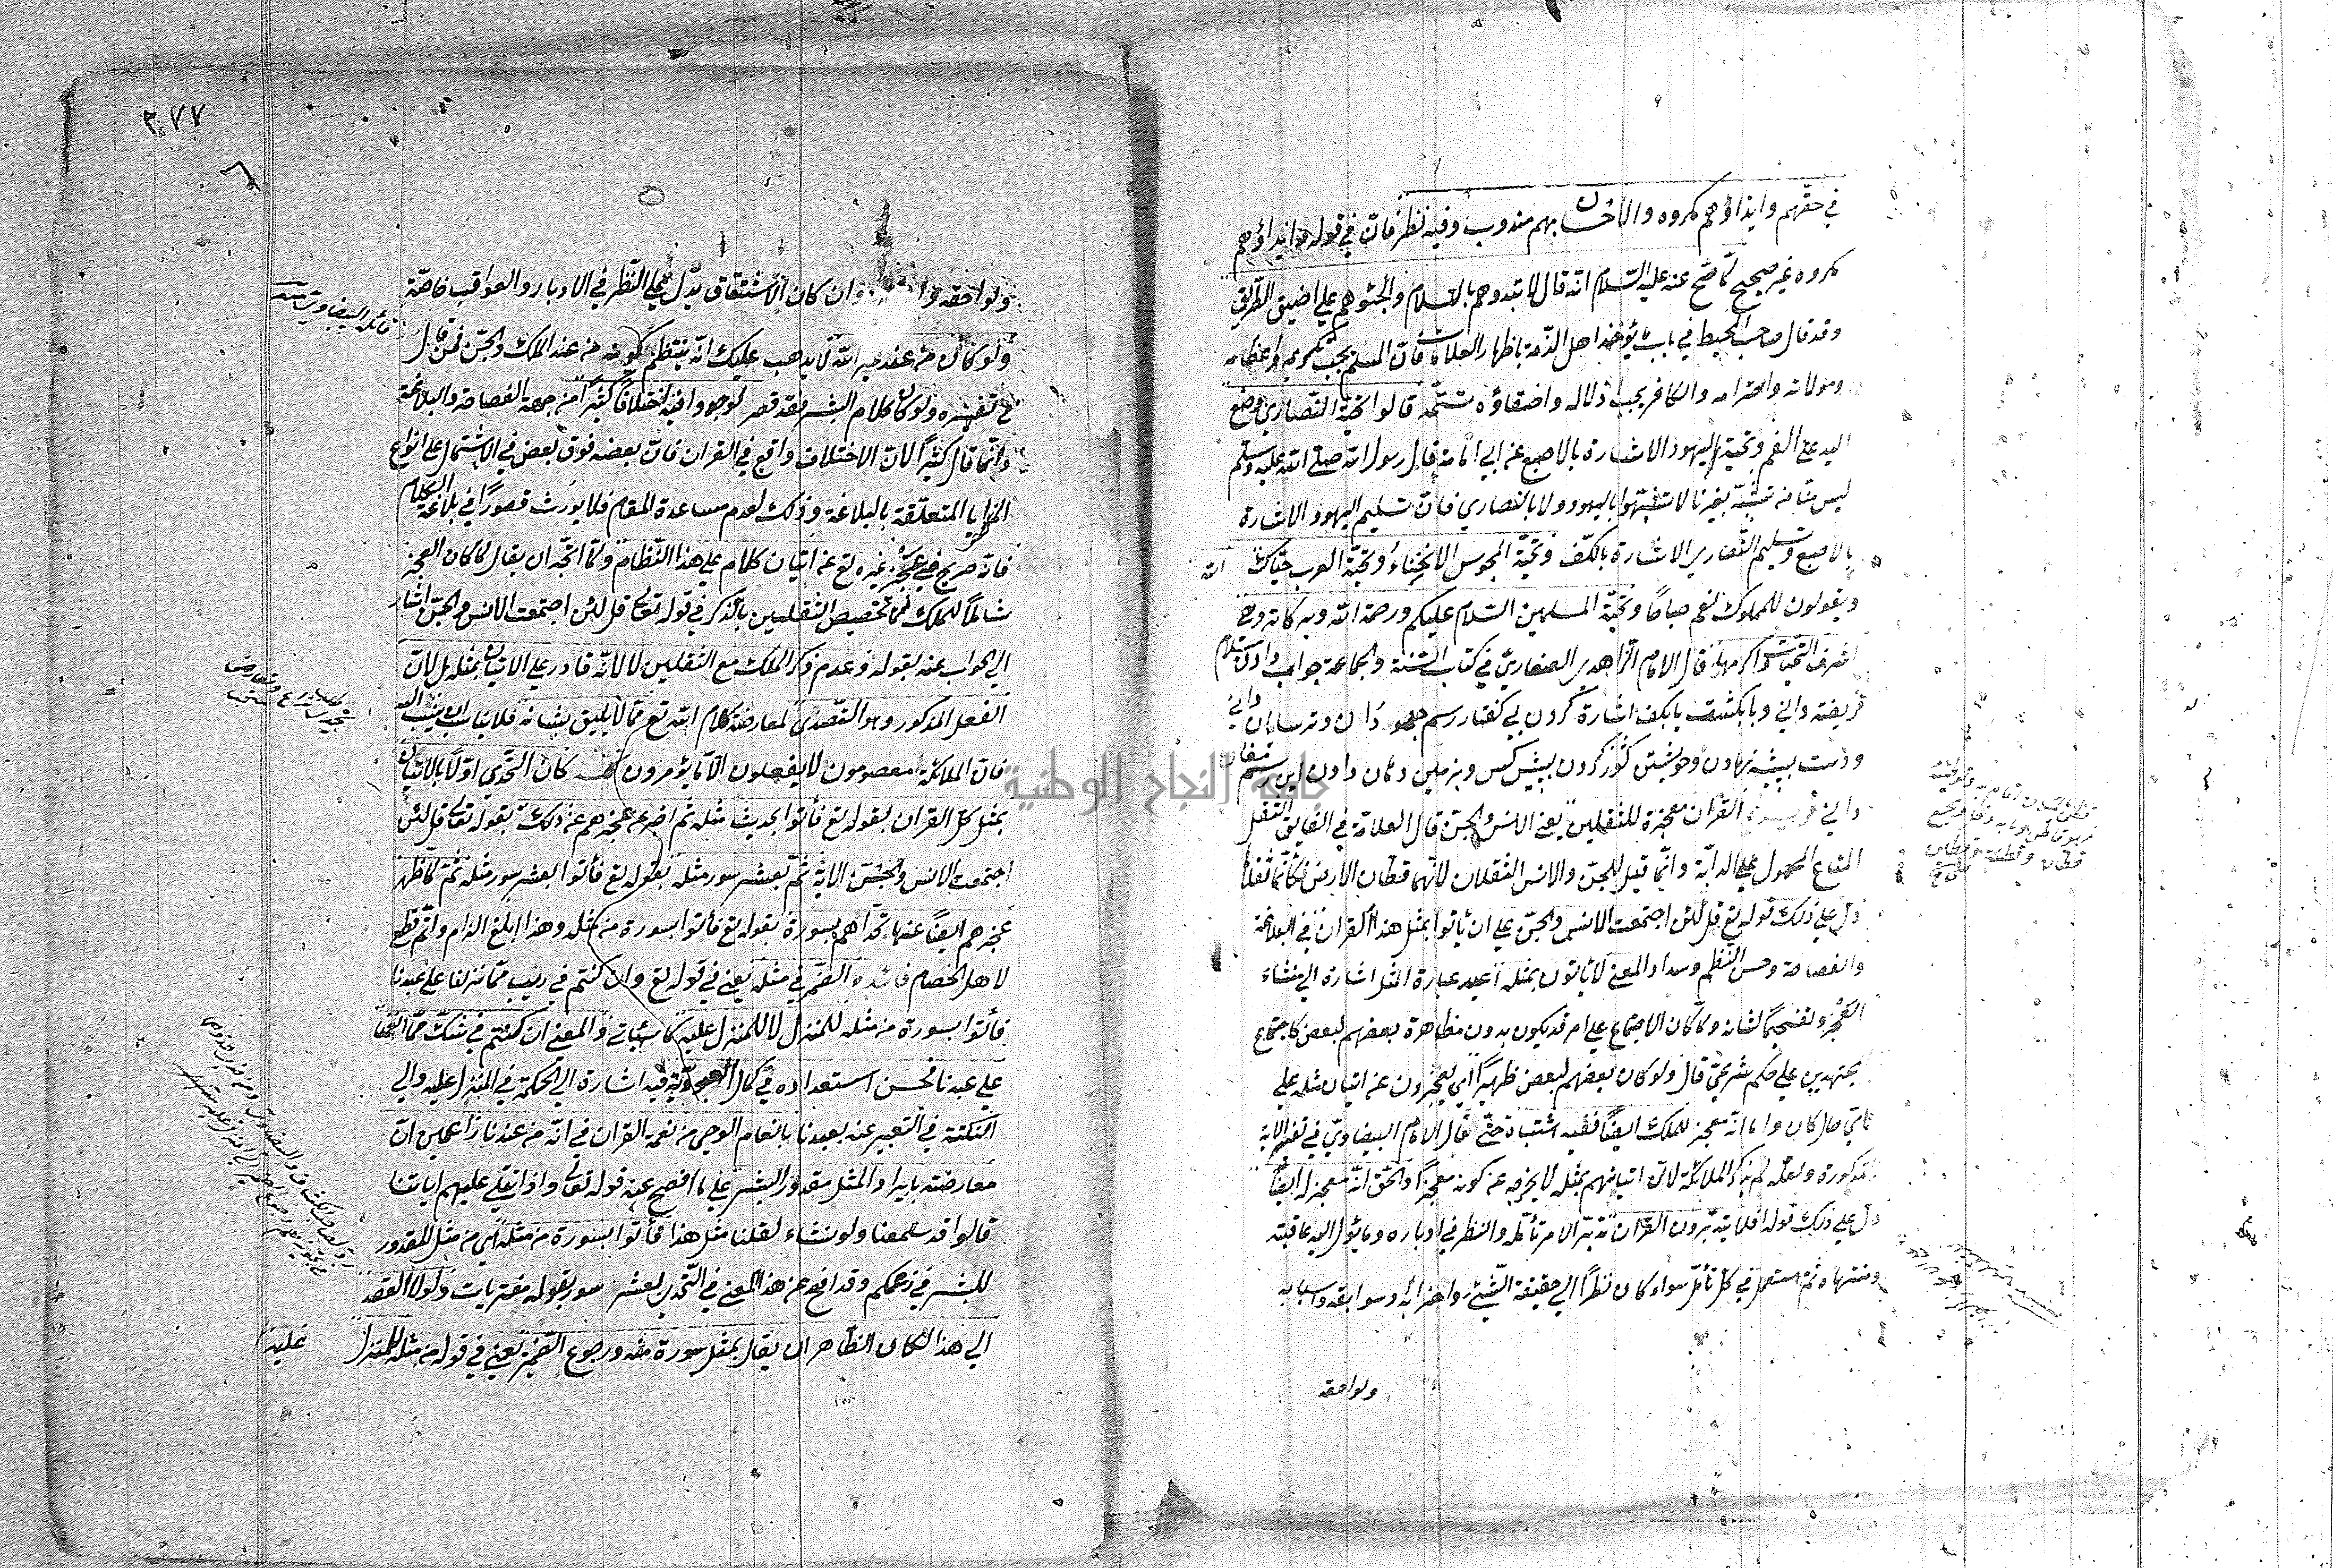 في حقهم وايذاؤهم مكروه والاحسان بهم مندوب وفيه نظر فان في قوله وايذاؤهم
مكروه غير صحيح لما صح عنه عليه السلام انه قال لا تبدوهم بالسلام والجئوهم علي اضيق الطرق
وقد قال صاحب المحيط في باب يؤخذ اهل الذمة باظهار العلامات فان المسلم يجب تكريمه واعظامه
وموالاته واحترامه والكافر يجب اذلاله واحتقاره تتمه قالوا تحية النصاري وضع
اليد علي الفم وتحية اليهود الاشارة بالاصبع عن ابي امامة قال رسول الله صلي الله عليه وسلم
ليس منا من تشبه بغيرنا لا تشبهوا باليهود ولا بالنصاري فان تسليم اليهود الاشارة
بالاصبع وتسليم النصاري الاشارة بالكف وتحية المجوس الانحناء وتحية العرب حياك الله
ويقولون للملوك انعم صباحا وتحية المسلمين السلام عليكم ورحمة الله وبركاته وهي
اشرف التحيات واكرمها قال الامام الزاهدي الصفاري في كتاب السنة والجماعة جواب دادن سلام
فريضه داني وبانكشت يا بكف اشارة كردن بي كفتار رسم جهودان وترسايان داني
ودست بسينه نهادن وخويشتن كوز كردن پيش كس وبزمين دادن اين رسم مغان
داني القران معجزة للثقلين يعني الانس والجن قال العلامة في الفايق الثقل
المتاع المحمول علي الدابة وانما قيل للجن والانس الثقلان لانهما قطان الارض فكانما ثقلا
دل علي ذلك قوله تع قل لئن اجتمعت الانس والجن علي ان يأتوا بمثل هذا القران في البلاغة
والفصاحة وحسن النظم وسداد المعني لا يأتون بمثله اعيد عبارة المثل اشارة الي منشاء
العجز وتفخيما لشانه ولما كان الاجتماع علي امر قد يكون بدون مظاهرة بعضهم لبعض كاجتماع
مجتهدين علي حكم شرعي قال ولو كان بعضهم لبعض ظهيرا اي يعجزون عن اتيان مثله علي
اي حال كان واما انه معجز للملك ايضا ففيه اشتباه حتي قال الامام البيضاوي في تفسير الاية
المذكورة ولعله لم يذكر الملائكة لان اتيانهم بمثله لا يخرجه عن كونه معجزا والحق انه معجز له ايضا
دل علي ذلك قوله افلا يتدبرون القران تدبر الامر تأمله والنظر في ادباره وما يؤل اليه عاقبته
ومنتهاه ثم استعمل في كل تأمل سواء كان نظرا الي حقيقة الشيء واجزائه وسوابقه واسبابه
ولواحقه
٢٠٧٧
ولواحقه وان كان الاشتقاق يدل علي النظر في الادبار والعواقب خاصة
ولو كان من عند غير الله لا يذهب عليك انه ينتظم كونه من عند الملك والجن فمن قال
في تفسيره ولو كان كلام البشر فقد قصر لوجدوا فيه اختلافا كثيرا من جهة الفصاحة والبلاغة
وانما قال كثيرا لان الاختلاف واقع في القران فان بعضه فوق بعض في الاشتمال علي انواع
المزايا المتعلقة بالبلاغة وذلك لعدم مساعدة المقام فلا يورث قصورا في بلاغة الكلام
فانه صريح في عجز غيره تع عن اتيان كلام علي هذا النظام ولما اتجه ان يقال لما كان العجز
شاملا للملك فما تخصيص الثقلين بالذكر في قوله تعالي قل لئن اجتمعت الانس والجن اشار
الي الجواب عنه بقوله وعدم ذكر الملك مع الثقلين لا لانه قادر علي الاتيان بمثله بل لان
الفعل المذكور وهو التصدي لمعارضة كلام الله تع مما لا يليق بشانه فلا يناسب ان ينسب اليه
فان الملائكة معصومون لا يفعلون الا ما يؤمرون كان التحدي اولا بالاتيان
بمثل كل القران بقوله تع فأتوا بحديث مثله ثم اخبر عن عجزهم عن ذلك بقوله تعالي قل لئن
اجتمعت الانس والجن الاية ثم بعشر سور مثله بقوله تع فأتوا بعشر سور مثله ثم لما ظهر
عجزهم ايضا عنها تحداهم بسورة بقوله تع فأتوا بسورة من مثله وهذا ابلغ الزام واتم قطع
لاهل الخصام فائدة الضمير في مثله يعني في قوله تع وان كنتم في ريب مما نزلنا علي عبدنا
فأتوا بسورة من مثله للمنزل لا للمنزل عليه كما سيأتي والمعني ان كنتم في شك مما انعمنا
علي عبدنا لحسن استعداده في كمال العبودية فيه اشارة الي الحكمة في المنزل عليه والي
النكتة في التعبير عنه بعبدنا بانعام الوحي من نعمة القران في انه من عندنا زاعمين ان
معارضته بايراد المثل مقدور البشر علي ما افصح عنه قوله تعالي واذا تتلي عليهم اياتنا
قالوا قد سمعنا ولو نشاء لقلنا مثل هذا فأتوا بسورة من مثله اي من مثل المقدور
للبشر في زعمكم وقد افصح عن هذا المعني في التحدي بعشر سور بقوله مفتريات ولولا القصد
الي هذا لكان الظاهر ان يقال بمثل سورة منه ورجوع الضمير يعني في قوله من مثله للمنزل عليه
جامعة النجاح الوطنية